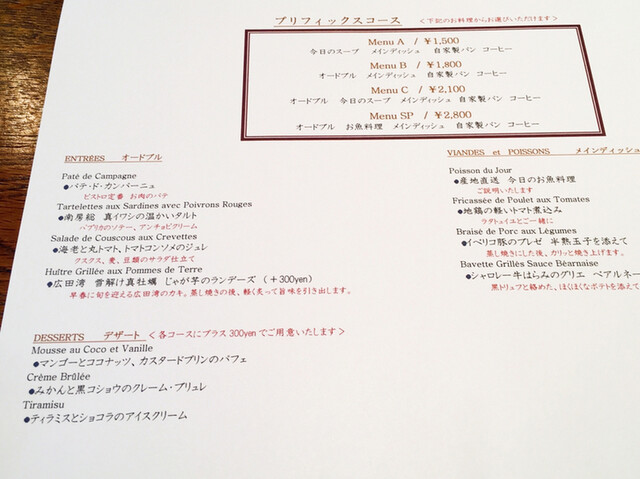 プリフィックスコース ＜下記のお料理からお選びいただけます＞
Menu A / ￥1,500
今日のスープ メインディッシュ 自家製パン コーヒー
Menu B / ￥1,800
オードブル メインディッシュ 自家製パン コーヒー
Menu C / ￥2,100
オードブル 今日のスープ メインディッシュ 自家製パン コーヒー
Menu SP / ￥2,800
オードブル お魚料理 メインディッシュ 自家製パン コーヒー
ENTRÉES オードブル
Paté de Campagne
●パテ・ド・カンパーニュ
ビストロ定番 お肉のパテ
Tartelettes aux Sardines avec Poivrons Rouges
●南房総 真イワシの温かいタルト
パプリカのソテー、アンチョビクリーム
Salade de Couscous aux Crevettes
●海老と丸トマト、トマトコンソメのジュレ
クスクス、麦、豆類のサラダ仕立て
Huître Grillée aux Pommes de Terre
●広田湾 雪解け真牡蠣 じゃが芋のランデーズ（＋300yen）
早春に旬を迎える広田湾のカキ。蒸し焼きの後、軽く炙って旨味を引き出します。
VIANDES et POISSONS メインディッシュ
Poisson du Jour
●産地直送 今日のお魚料理
ご説明いたします
Fricassée de Poulet aux Tomates
●地鶏の軽いトマト煮込み
ラタトゥイユとご一緒に
Braisé de Porc aux Légumes
●イベリコ豚のブレゼ 半熟玉子を添えて
蒸し焼きにした後、カリッと焼き上げます。
Bavette Grillés Sauce Béarnaise
●シャロレー牛はらみのグリエ ベアルネー
黒トリュフと絡めた、ほくほくなポテトを添えて
DESSERTS デザート ＜各コースにプラス300yenでご用意いたします＞
Mousse au Coco et Vanille
●マンゴーとココナッツ、カスタードプリンのパフェ
Crème Brûlée
●みかんと黒コショウのクレーム・ブリュレ
Tiramisu
●ティラミスとショコラのアイスクリーム